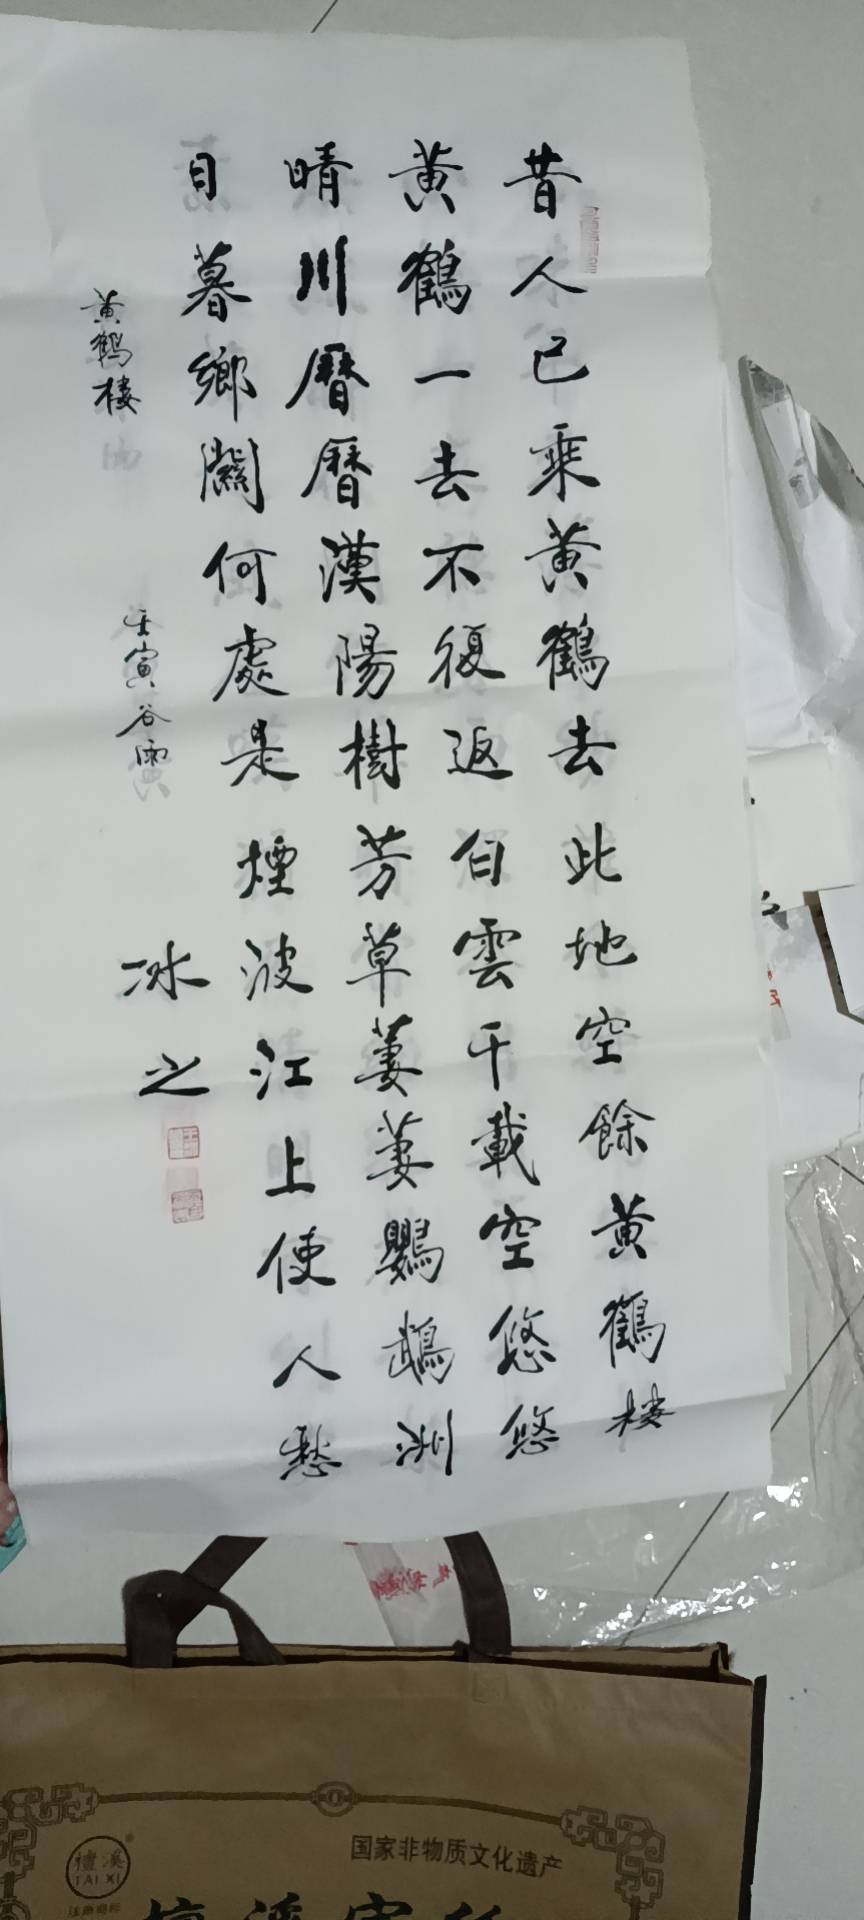 昔人已乘黄鶴去此地空餘黄鶴樓
黄鶴一去不復返白雲千載空悠悠
晴川曆曆漢陽樹芳草萋萋鸚鵡洲
日暮鄉關何處是煙波江上使人愁
黄鶴樓
壬寅谷雨
冰之
国家非物质文化遗产
檀溪
TAI XI
注册商标